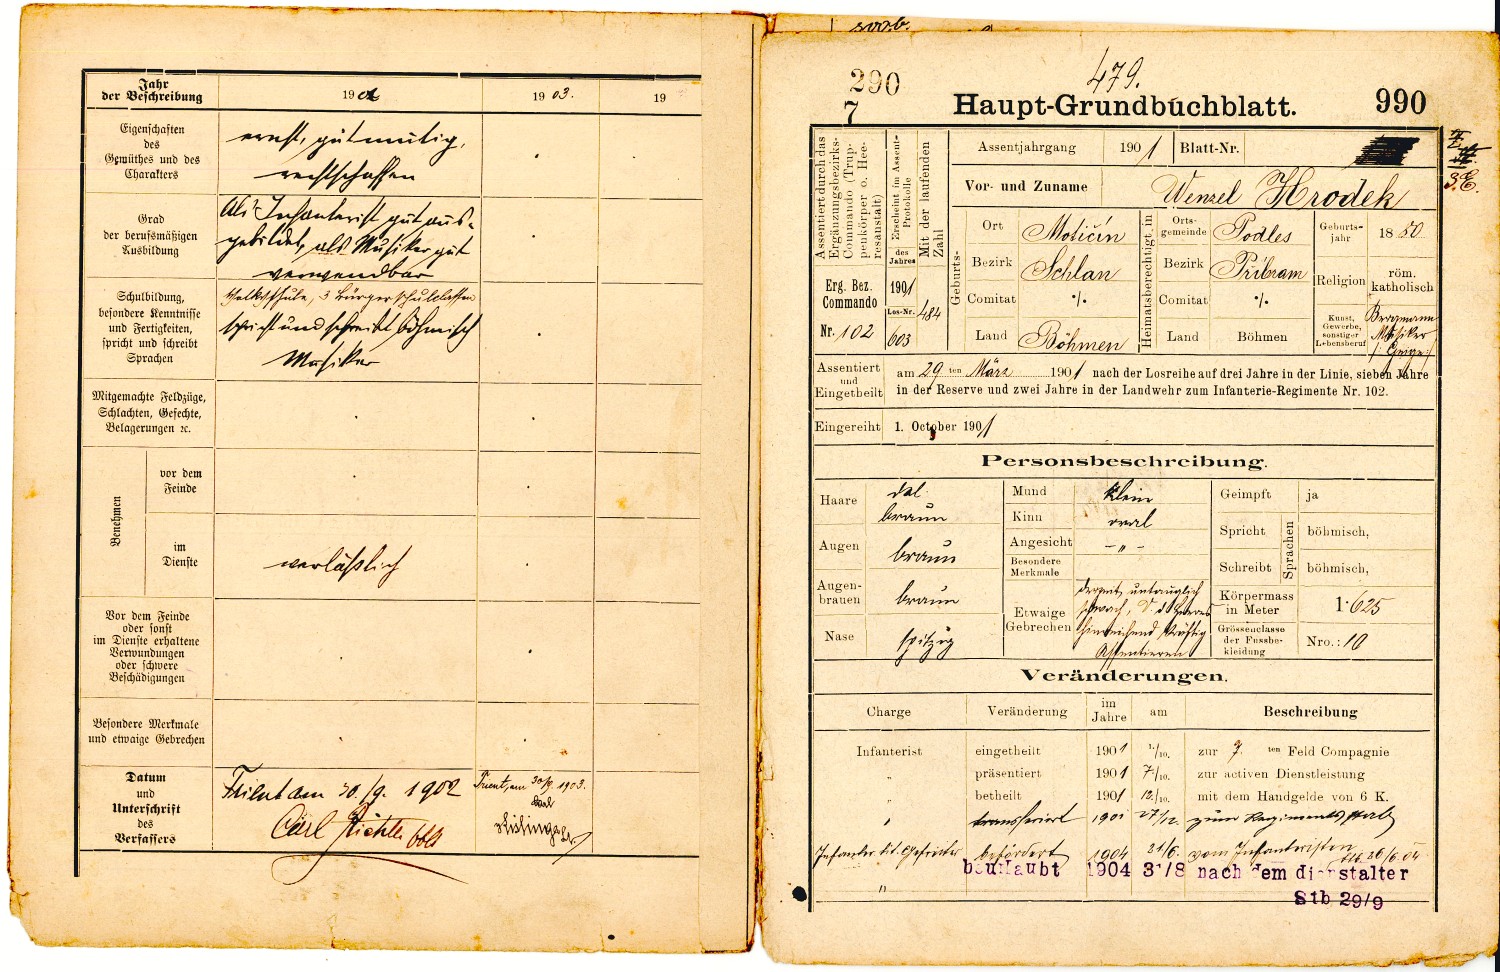 Jahr
der Beschreibung
1902
1903.
19
Eigenschaften
des
Gemüthes und des
Charakters
ernst, gutmutig,
rechtschaffen
Grad
der berufsmäßigen
Ausbildung
Als Infanterist gut aus-
gebildet, als Musiker gut
verwendbar
Schulbildung,
besondere Kenntnisse
und Fertigkeiten,
spricht und schreibt
Sprachen
Volksschule, 3 Bürgerschulclassen
spricht und schreibt böhmisch
Musiker
Mitgemachte Feldzüge,
Schlachten, Gefechte,
Belagerungen ꝛc.
Benehmen
vor dem
Feinde
im
Dienste
verläßlich
Vor dem Feinde
oder sonst
im Dienste erhaltene
Verwundungen
oder schwere
Beschädigungen
Besondere Merkmale
und etwaige Gebrechen
Datum
und
Unterschrift
des
Verfassers
Trient am 30./9. 1902
Carl Richter
Trient, am 30/9. 1903.
290
7
479.
Haupt-Grundbuchblatt.
990
Assentiert durch das
Ergänzungsbezirks-
Commando (Trup-
penkörper o. Hee-
resanstalt)
Erscheint im Assent-
Protokolle
des
Jahres
Mit der laufenden
Zahl
Erg. Bez.
Commando
Nr. 102
1901
Los-Nr.
603
484
Assentjahrgang
1901
Blatt-Nr.
Vor- und Zuname
Wenzel Hrodek
Geburts-
Ort
Motičin
Bezirk
Schlan
Comitat
·/.
Land
Böhmen
Heimatsberechtigt in
Orts-
gemeinde
Podles
Bezirk
Přibram
Comitat
·/.
Land
Böhmen
Geburts-
jahr
1880
Religion
röm.
katholisch
Kunst,
Gewerbe,
sonstiger
Lebensberuf
Bergmann
Musiker
/:Geige:/
Assentiert
und
Eingetheilt
am 29 ten März 1901 nach der Losreihe auf drei Jahre in der Linie, sieben Jahre
in der Reserve und zwei Jahre in der Landwehr zum Infanterie-Regimente Nr. 102.
Eingereiht
1. October 1901
Personsbeschreibung.
Haare
braun
Augen
braun
Augen-
brauen
braun
Nase
spitzig
Mund
klein
Kinn
oval
Angesicht
-„-
Besondere
Merkmale
Etwaige
Gebrechen
derzeit untauglich
schwach,
hinreichend kräftig
Assentieren
Geimpft
ja
Spricht
böhmisch,
Sprachen
Schreibt
böhmisch,
Körpermass
in Meter
1·625
Grössenclasse
der Fussbe-
kleidung
Nro.: 10
Veränderungen.
Charge
Veränderung
im
Jahre
am
Beschreibung
Infanterist
eingetheilt
1901
1./10.
zur 7. ten Feld Compagnie
„
präsentiert
1901
7./10.
zur activen Dienstleistung
„
betheilt
1901
12./10.
mit dem Handgelde von 6 K.
„
transferiert
1901
27/12.
zum Regimentsstab
Infanterist tit. Gefreiter
befördert
1904
21/6.
vom Infanteristen
beurlaubt 1904 31/8 nach dem dienstalter
„
Stb 29/9